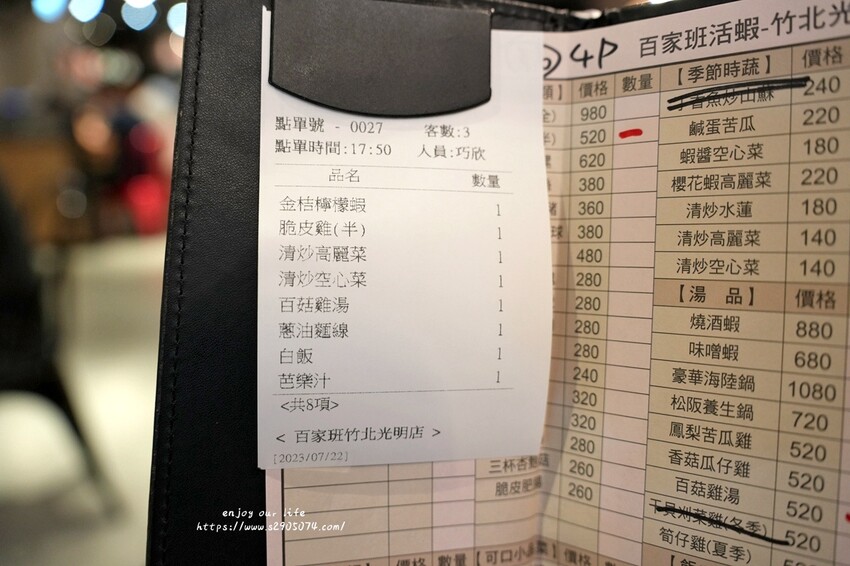 點單號 - 0027 客數:3
點單時間:17:50 人員:巧欣
品名 數量
金桔檸檬蝦 1
脆皮雞(半) 1
清炒高麗菜 1
清炒空心菜 1
百菇雞湯 1
蔥油麵線 1
白飯 1
芭樂汁 1
<共8項>
< 百家班竹北光明店 >
[2023/07/22]
4P 百家班活蝦-竹北光
價格 數量
980
520
620
380
360
380
480
280
280
280
240
320
320
280
260
260
三杯杏鮑菇
脆皮肥腸
價格 數量
【季節時蔬】 價格
240
鹹蛋苦瓜 220
蝦醬空心菜 180
櫻花蝦高麗菜 220
清炒水蓮 180
清炒高麗菜 140
清炒空心菜 140
【湯 品】 價格
燒酒蝦 880
味噌蝦 680
豪華海陸鍋 1080
松阪養生鍋 720
鳳梨苦瓜雞 520
香菇瓜仔雞 520
百菇雞湯 520
干貝刈菜雞(冬季) 520
筍仔雞(夏季) 520
【可口小
價格
enjoy our life
https://www.s2905074.com/